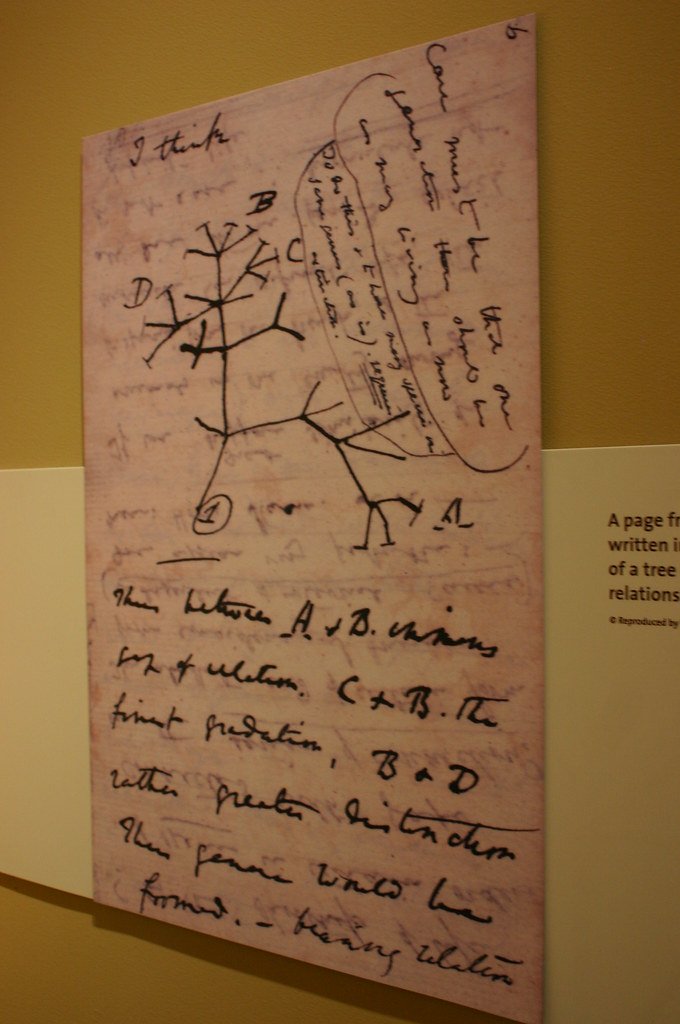 I think
B
C
D
A
1
Case must be that one
generation then should be
as many living as now
To do this & to have many species in
same genus (as is). requires
extinction.
Thus between A & B. immens
gap of relation. C & B. The
finest gradation, B & D
rather greater distinction
Thus genera would be
formed. — bearing relation
A page fr
written i
of a tree
relations
© Reproduced by